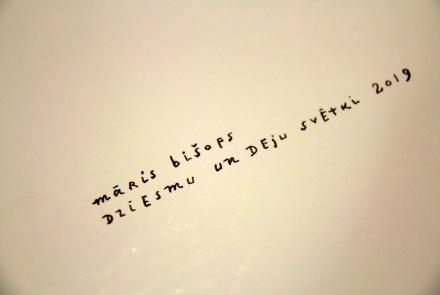 māris bišops
dziesmu un deju svētki 2019